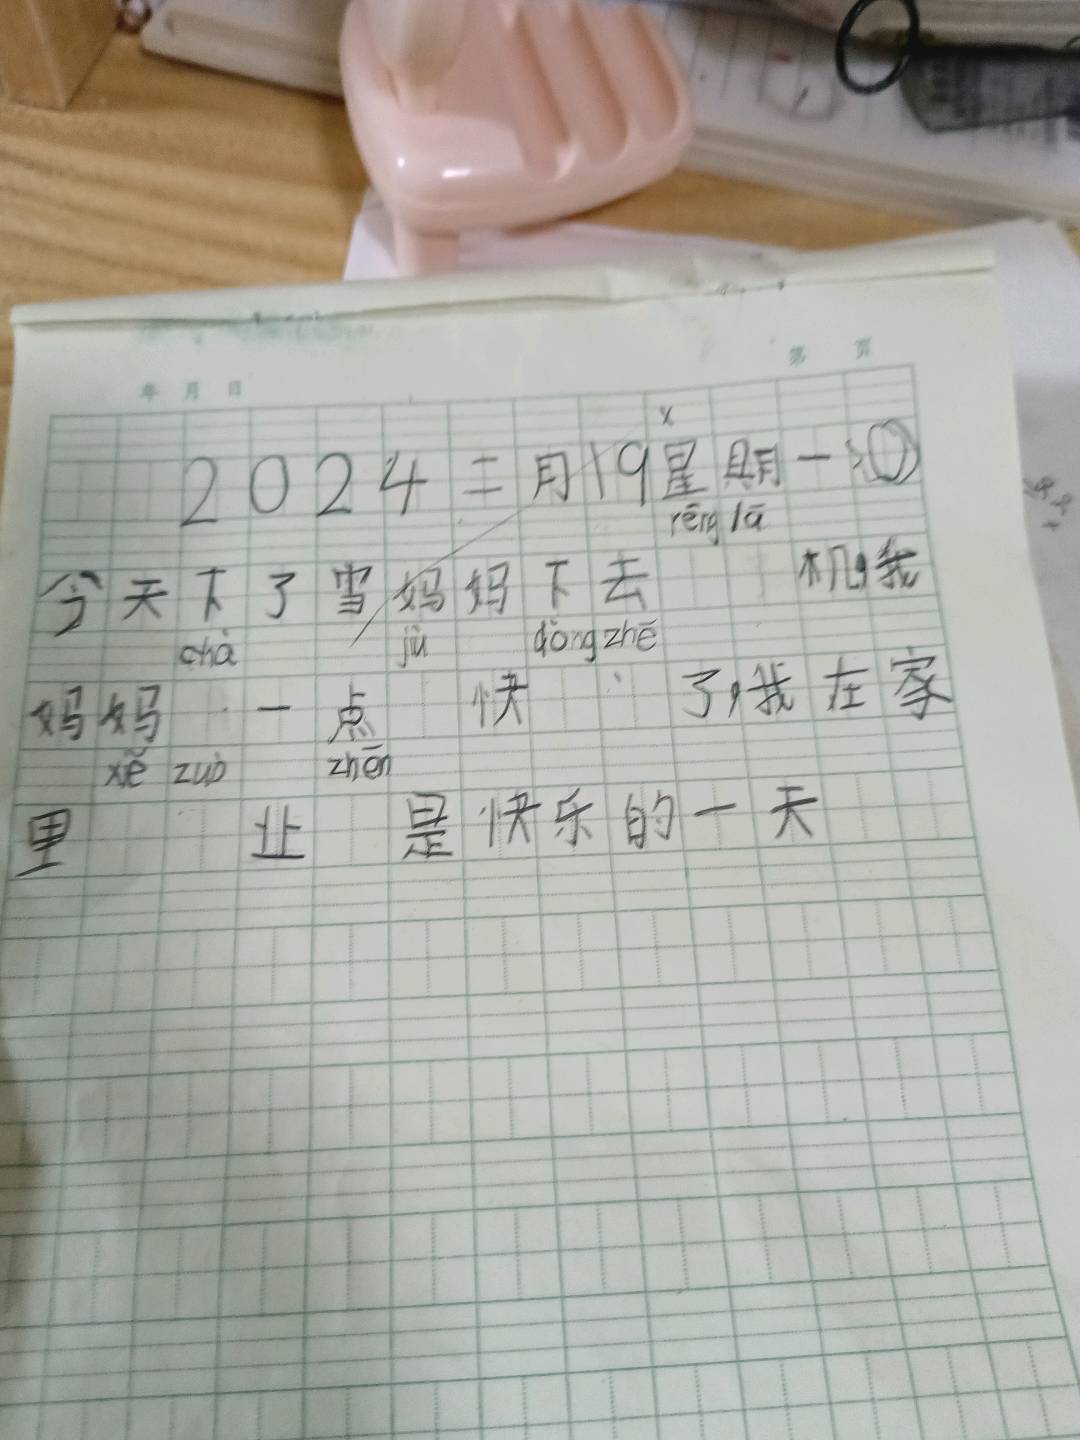 第 页
年 月 日
x
2024二月19星期一
rēng lā
今天下了雪妈妈下去 机,我
chà jù dòng zhē
妈妈 一点 快 了,我在家
xě zuò zhēn
里 业 是快乐的一天